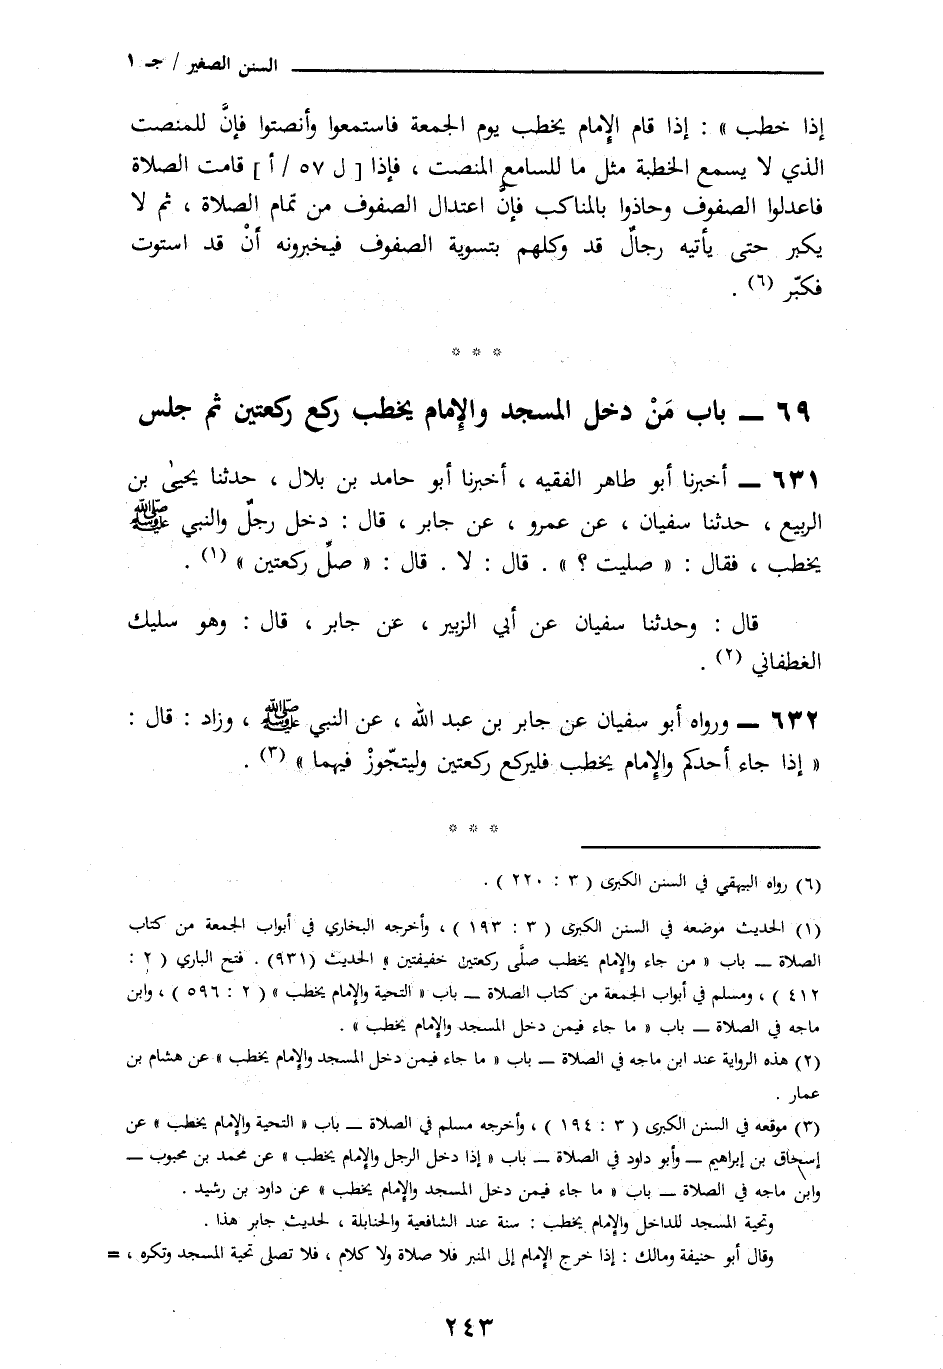 السنن الصغير / جـ ١
إذا خطب » : إذا قام الإمام يخطب يوم الجمعة فاستمعوا وأنصتوا فإنَّ للمنصت
الذي لا يسمع الخطبة مثل ما للسامع المنصت ، فإذا [ ل ٥٧ / أ ] قامت الصلاة
فاعدلوا الصفوف وحاذوا بالمناكب فإنَّ اعتدال الصفوف من تمّام الصلاة ، ثم لا
يكبر حتى يأتيه رجالٌ قد وكلهم بتسوية الصفوف فيخبرونه أنْ قد استوت
فكبّر (٦) .
* * *
٦٩ ــ باب مَنْ دخل المسجد والإمام يخطب ركع ركعتين ثم جلس
٦٣١ ــ أخبرنا أبو طاهر الفقيه ، أخبرنا أبو حامد بن بلال ، حدثنا يحيىٰ بن
الربيع ، حدثنا سفيان ، عن عمرو ، عن جابر ، قال : دخل رجلٌ والنبي ﷺ
يخطب ، فقال : « صليت ؟ » . قال : لا . قال : « صلِّ ركعتين » (١) .
قال : وحدثنا سفيان عن أبي الزبير ، عن جابر ، قال : وهو سليك
الغطفاني (٢) .
٦٣٢ ــ ورواه أبو سفيان عن جابر بن عبد الله ، عن النبي ﷺ ، وزاد : قال :
« إذا جاء أحدكم والإمام يخطب فليركع ركعتين وليتجّوزْ فيهما » (٣) .
* * *
(٦) رواه البيهقي في السنن الكبرى ( ٣ : ٢٢٠ ) .
(١) الحديث موضعه في السنن الكبرى ( ٣ : ١٩٣ ) ، وأخرجه البخاري في أبواب الجمعة من كتاب
الصلاة ــ باب « من جاء والإمام يخطب صلَّى ركعتين خفيفتين » الحديث (٩٣١) . فتح الباري ( ٢ :
٤١٢ ) ، ومسلم في أبواب الجمعة من كتاب الصلاة ــ باب « التحية والإمام يخطب » ( ٢ : ٥٩٦ ) ، وابن
ماجه في الصلاة ــ باب « ما جاء فيمن دخل المسجد والإمام يخطب » .
(٢) هذه الرواية عند ابن ماجه في الصلاة ــ باب « ما جاء فيمن دخل المسجد والإمام يخطب » عن هشام بن
عمار .
(٣) موقعه في السنن الكبرى ( ٣ : ١٩٤ ) ، وأخرجه مسلم في الصلاة ــ باب « التحية والإمام يخطب » عن
إسحاق بن إبراهيم ــ وأبو داود في الصلاة ــ باب « إذا دخل الرجل والإمام يخطب » عن محمد بن محبوب ــ
وابن ماجه في الصلاة ــ باب « ما جاء فيمن دخل المسجد والإمام يخطب » عن داود بن رشيد .
وتحية المسجد للداخل والإمام يخطب : سنة عند الشافعية والحنابلة ، لحديث جابر هذا .
وقال أبو حنيفة ومالك : إذا خرج الإمام إلى المنبر فلا صلاة ولا كلام ، فلا تصلى تحية المسجد وتكره ، =
٢٤٣